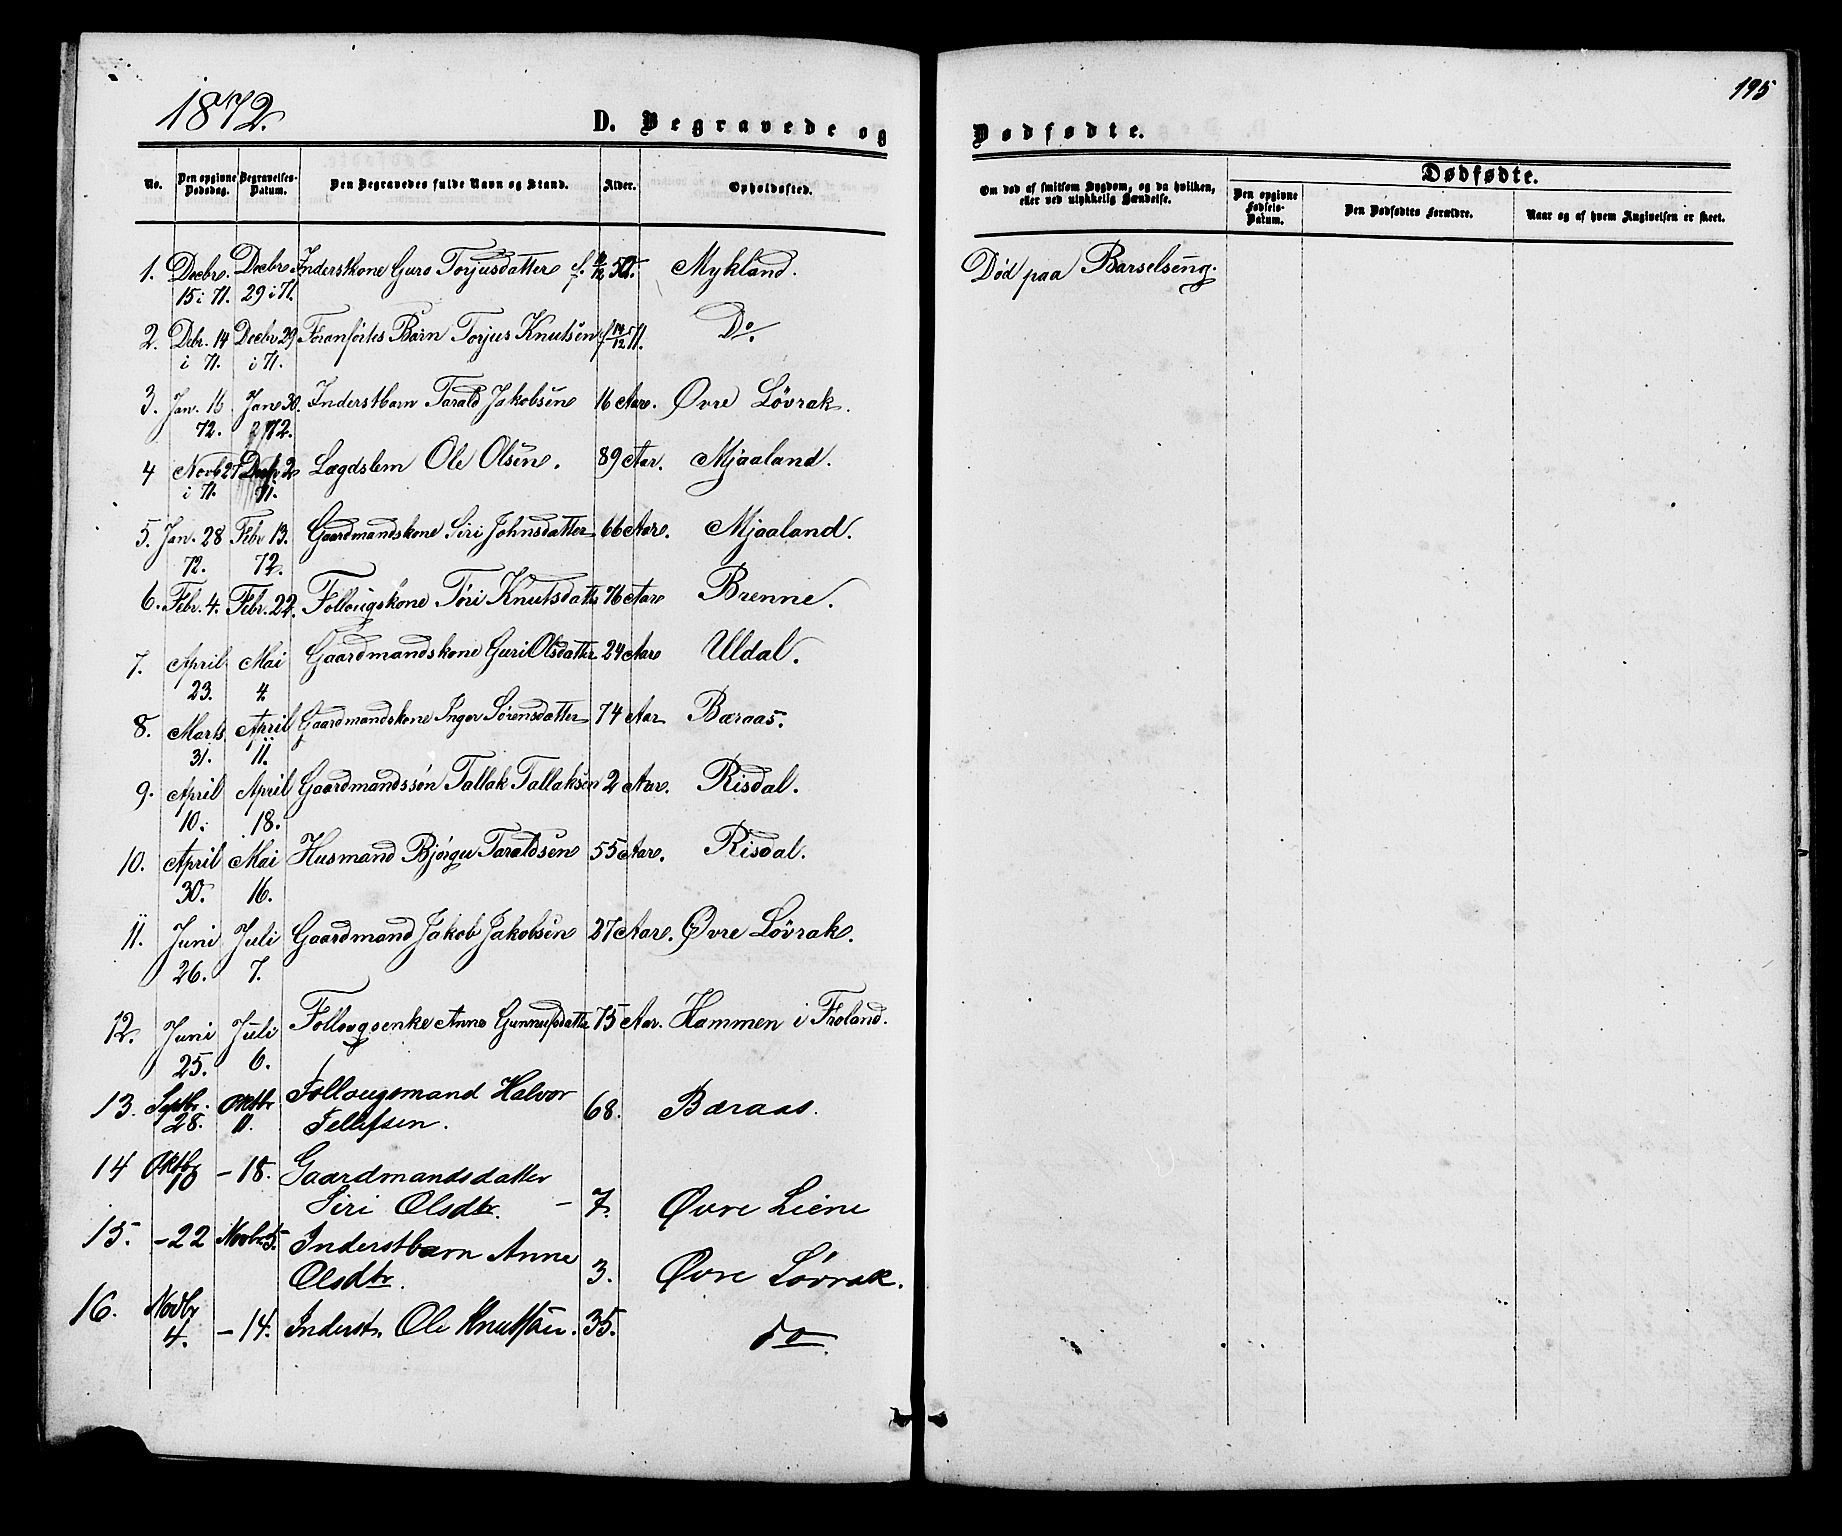 1872.
D. Begravede og
No.
Den opgivne Dødsdag.
Begravelses-Datum.
Den Begravedes fulde Navn og Stand.
Alder.
Opholdssted.
1. Decbr. 15 i 71. Decbr 29 i 71. Inderstkone Guro Torjusdatter f. Mykland.
2. Debr. 14 i 71. Decbr 29 i 71. Foranførtes Barn Torjus Knutsen f 14/12 71. Do.
3. Jan. 16 72. Jan 30. 72. Inderstbarn Tarald Jakobsen 16 Aar. Øvre Løvrak.
4 Novb 27 i 71. Decbr 2 71. Lægdslem Ole Olsen. 89 Aar. Mjaaland.
5. Jan. 28 72. Febr 13. 72. Gaardmandskone Siri Johnsdatter 66 Aar. Mjaaland.
6. Febr. 4. Febr. 22. Follougskone Tori Knutsdatter 76 Aar Brenne.
7. April 23. Mai 4. Gaardmandskone Guri Olsdatter 24 Aar Uldal.
8. Marts 31. April 11. Gaardmandskone Inger Sørensdatter 74 Aar Bæraas.
9. April 10. April 18. Gaardmandssøn Tallak Tallaksen 2 Aar. Risdal.
10. April 30. Mai 16. Husmand Bjørgu Taraldsen 55 Aar. Risdal.
11. Juni 26. Juli 7. Gaardmand Jakob Jakobsen 27 Aar. Øvre Løvrak.
12. Juni 25. Juli 6. Follougsenke Anne Gunnufsdatter 75 Aar. Hammen i Froland.
13. Septbr. 28. Oktbr 11. Follougsmand Halvor
Tellefsen. 68. Bæraas.
14 Oktbr 10 – 18. Gaardmandsdatter
Siri Olsdtr. – 7. Øvre Liene
15. – 22 Novbr 5. Inderstbarn Anne
Olsdtr. 3. Øvre Løvrak.
16. Novbr 4. – 14. Inderst. Ole Knutsen. 35. do
195
Dødfødte.
Om død af smitsom Sygdom, og da hvilken, eller ved ulykkelig Hændelse.
Dødfødte.
Den opgivne Fødsels-Datum.
Den Dødfødtes Forældre.
Naar og af hvem Angivelsen er skeet.
Død paa Barselseng.